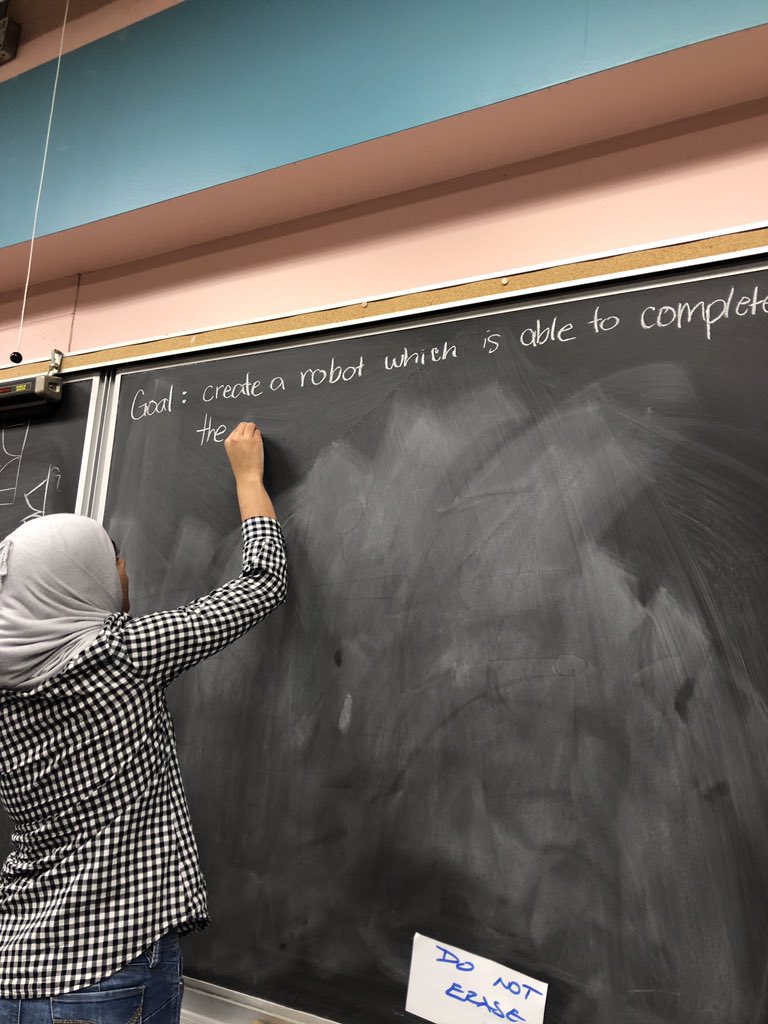 Goal: create a robot which is able to complete
the
DO NOT
ERASE